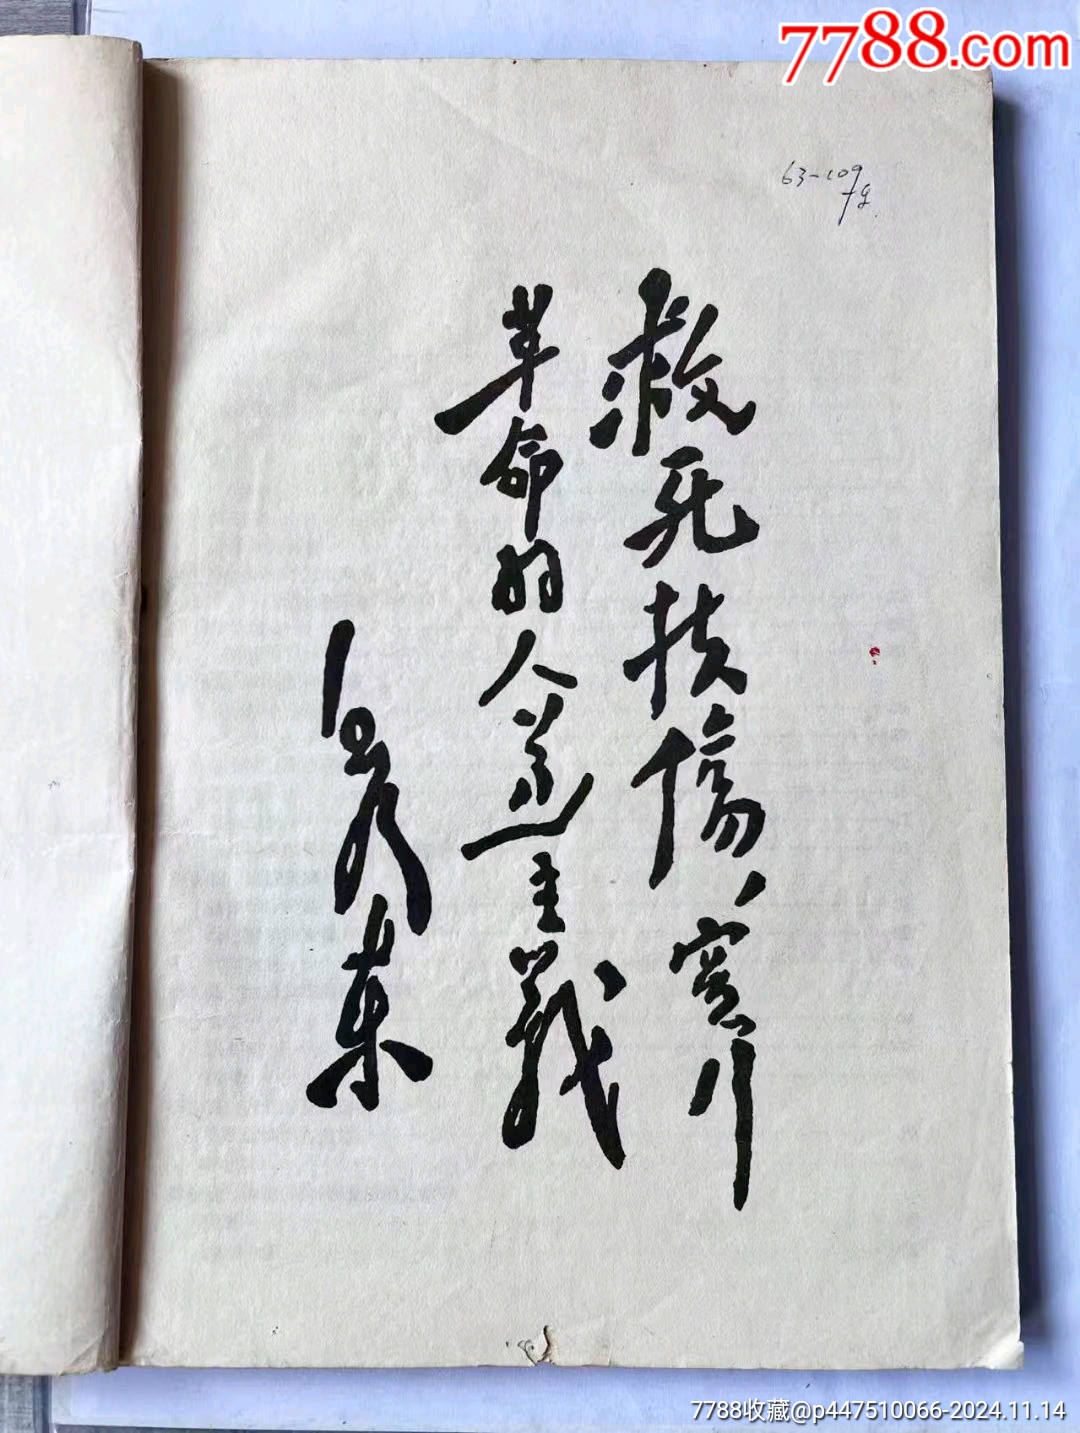 7788.com
63-109
79.
救死扶傷，實行
革命的人道主義
毛澤東
7788收藏@p447510066-2024.11.14